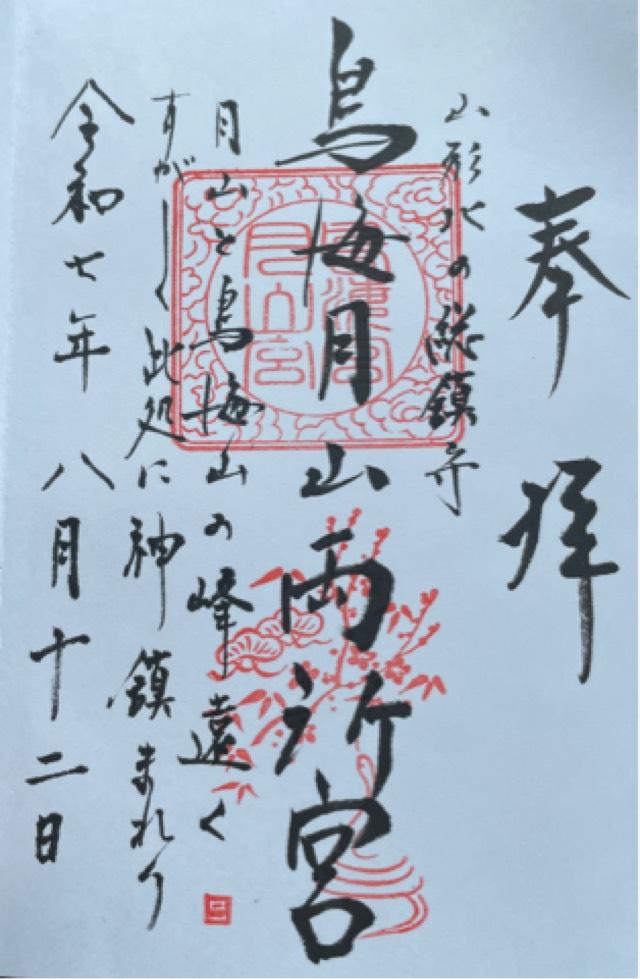 奉拝
山形北の総鎮守
鳥海月山両所宮
月山と鳥海山の峰遠く
すがしく此処に神鎮まれり
令和七年 八月十二日